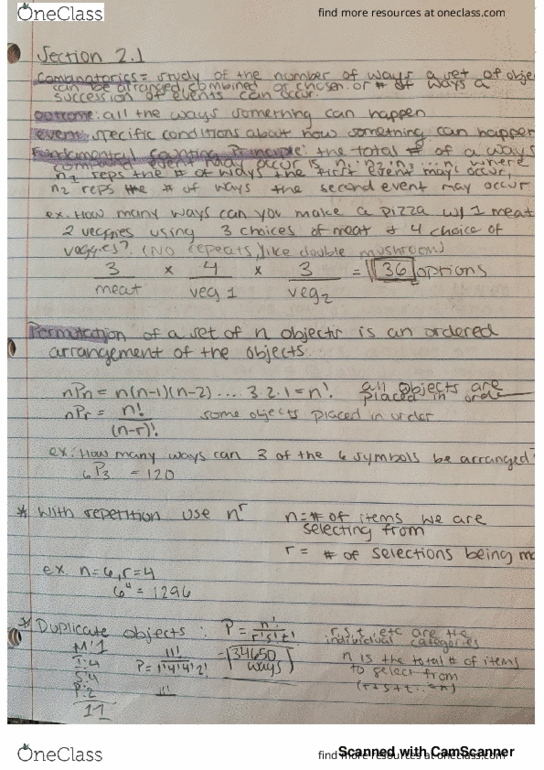 OneClass
find more resources at oneclass.com
Section 2.1
Combanatorics = study of the number of ways a set of obje
can be arranged, combined or chosen. or # of ways a
succession of events can occur.
outcome: all the ways something can happen
event: specific conditions about how something can happen
Fundamental Counting Principle: the total # of a ways
compound event may occur is n₁·n₂·n₃ ... nᵢ where
n₁ reps the # of ways the first event may occur,
n₂ reps the # of ways the second event may occur
ex. How many ways can you make a pizza w/ 1 meat
2 veggies using 3 choices of meat & 4 choice of
veggies? (No repeats, like double mushroom)
3 × 4 × 3 = 36 options
meat veg 1 veg 2
Permutation of a set of n objects is an ordered
arrangement of the objects.
nPn = n(n-1)(n-2) .... 3·2·1 = n! all objects are placed in order
nPr = n!/(n-r)! some objects placed in order
ex: How many ways can 3 of the 6 symbols be arranged?
₆P₃ = 120
* With repetition use nʳ n = # of items we are
selecting from
r = # of selections being ma
ex. n=6, r=4
6⁴ = 1296
* Duplicate objects: P = n!/r!s!t! r, s, t etc are the
individual categories
M: 1
I: 4
S: 4
P: 2
11
P = 11!/1!4!4!2! = 34650 ways
11!
n is the total # of items
to select from
(r+s+t... = n)
OneClass
find more resources at oneclass.com
Scanned with CamScanner